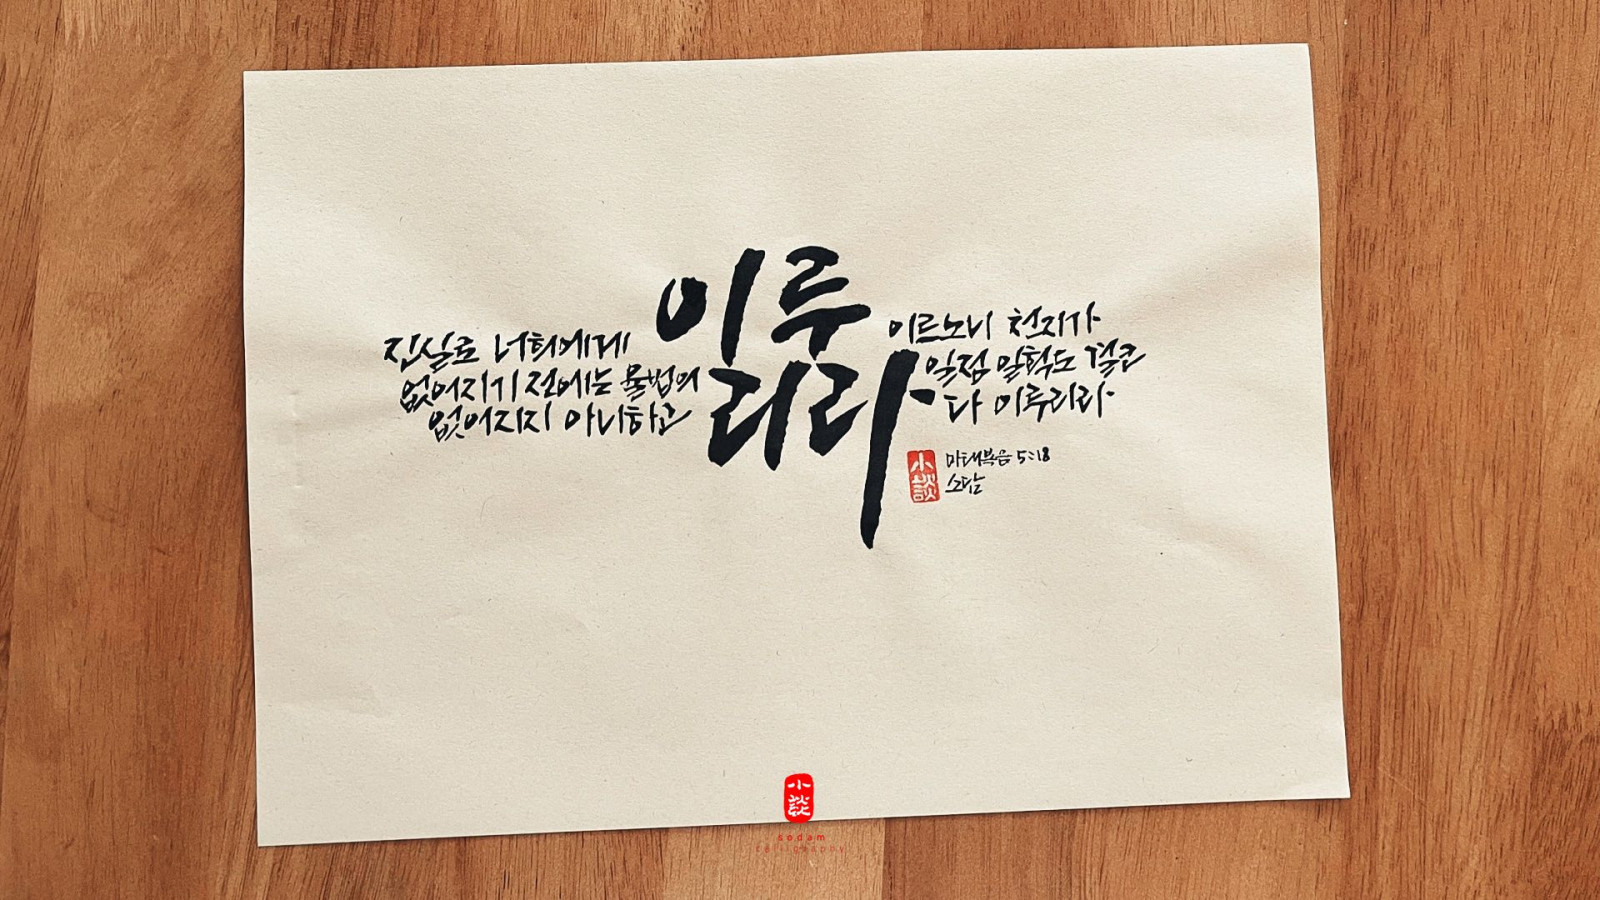 이루
리라
진실로 너희에게 이르노니 천지가
없어지기 전에는 율법의 일점 일획도 결코
없어지지 아니하고 다 이루리라
小談
마태복음 5:18
소담
小談
sodam
calligraphy